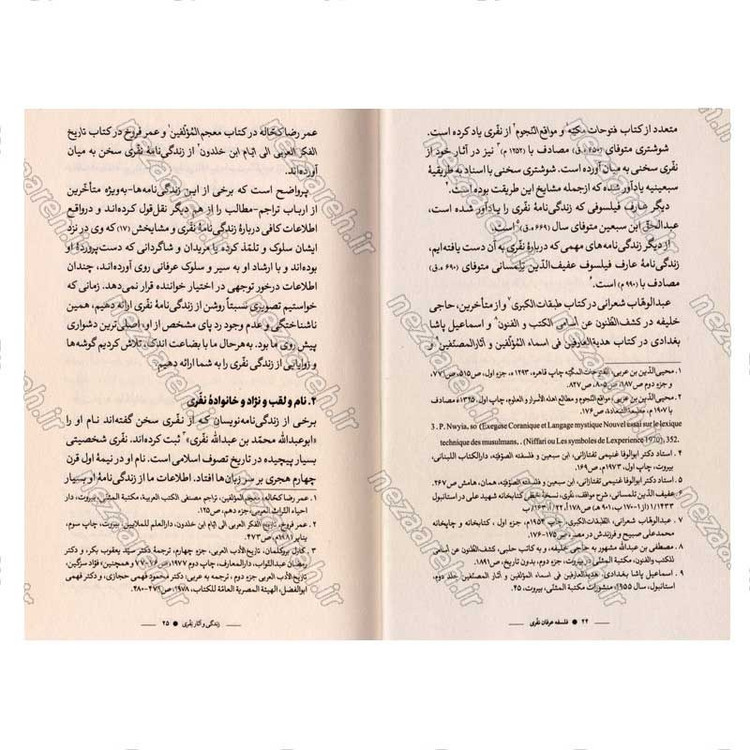 متعدد از کتاب فتوحات مکیّه۱ و مواقع النّجوم۲ از نفّری یاد کرده است.
شوشتری متوفای (۶۵۰ ه.ق) مصادف با (۱۲۵۲ م)۳ نیز در آثار خود از
نفّری سخنی به میان آورده است. شوشتری سخنی با اسناد به طریقیهٔ
سبعینیه یادآور شده که ازجمله مشایخ این طریقت بوده است.۴
دیگر عارف فیلسوفی که زندگی‌نامهٔ نفّری را یادآور شده است،
عبدالحق ابن سبعین متوفای سال (۶۶۹ ه.ق)۵ است.
از دیگر زندگی‌نامه‌های مهمی که دربارهٔ نفّری به آن دست یافته‌ایم،
زندگی‌نامهٔ عارف فیلسوف عفیف‌الدّین تلمسانی متوفای (۶۹۰ ه.ق)
مصادف با (۹۹۰ م) است.۶
عبدالوهاب شعرانی در کتاب طبقات الکبری۷ و از متأخرین، حاجی
خلیفه در کشف‌الظّنون عن أسامی الکتب و الفنون۸ و اسماعیل پاشا
بغدادی در کتاب هدیة‌العارفین فی اسماء المؤلّفین و آثارالمصنّفین۹ و
۱. محیی‌الدّین بن عربی، الفتوحات المکیّه چاپ قاهره، ۱۲۹۳ ه، جزء اول، ص۵۱۵، ص۷۷۱،
و جزء دوم ص۱۸۷، ص۸۰۵، ص۸۲۷.
۲. محیی‌الدّین بن عربی، مواقع النّجوم و مطالع اهله الأسرار و العلوم، چاپ اول، ۱۳۲۵ه مصادف
با ۱۹۰۷ م، مطبعة السّعادة، ص۱۷۶.
3 . P. Nwyia, so (Exegese Coranique et Langage mystique Nouvel essai sur le lexique
technique des musulmans, . (Niffari ou Les symboles de Lexperience 1970), 352.
۴. استاد دکتر ابوالوفا غنیمی تفتازانی، ابن سبعین و فلسفه الصوّفیّه، دارالکتاب اللبنانی،
بیروت، چاپ اول، ۱۹۷۳م، ص۱۶۹.
۵. استاد دکتر ابوالوفا غنیمی تفتازانی، ابن سبعین و فلسفه الصّوفیّه، همان، هامش ص۲۶۷.
۶. عفیف الدّین تلمسانی، شرح مواقف نفّری، نسخهٔ خطّی کتابخانه شهید علی در استانبول
۷. عبدالوهاب شعرانی، الطّبقات الکبری، چاپ اول، ۱۹۵۴م، جزء اول، کتابخانه و چاپخانه
محمدعلی صبیح و فرزندش در مصر، ص۱۷۵-۱۷۶.
۸. مصطفی بن عبدالله مشهور به حاجی خلیفه، و به کاتب حلبی، کشف‌الظنون عن أسامی
للکتب والفنون، مکتبة المثنّی، بیروت، جزء دوم، بدون تاریخ، ص۱۸۹۱.
۹. اسماعیل پاشا بغدادی، هدیة‌العارفین فی اسماء المؤلفین و آثار المصنّفین جلد دوم،
استانبول، سال ۱۹۵۵م، منشورات مکتبة المثنّی، بیروت، ۴۵.
۲۴ ● فلسفه عرفان نفّری
عمر رضا کحّاله در کتاب معجم المؤلّفین۱ و عمر فروخ در کتاب تاریخ
الفکر العربی الی ایّام ابن خلدون۲، از زندگی‌نامهٔ نفّری سخن به میان
آورده‌اند.
پرواضح است که برخی از این زندگی‌نامه‌ها-به‌ویژه متأخّرین
از ارباب تراجم-مطالب را از هم دیگر نقل‌قول کرده‌اند و درواقع
اطلاعات کافی دربارهٔ زندگی‌نامهٔ نفّری و مشایخش (۱۷) که وی در نزد
ایشان سلوک و تلمّذ کرده یا مریدان و شاگردانی که دست‌پروردهٔ او
بوده‌اند و با ارشاد او به سیر و سلوک عرفانی روی آورده‌اند، چندان
اطلاعات درخور توجهی در اختیار خواننده قرار نمی‌دهد. زمانی که
خواستیم تصویری نسبتاً روشن از زندگی‌نامهٔ نفّری ارائه دهیم، همین
ناشناختگی و عدم وجود رد پای مشخص از او، اصلی‌ترین دشواری
پیش روی ما بود. به‌هرحال ما با بضاعت اندک، تلاش کردیم گوشه‌ها
و زوایایی از زندگی نفّری را به شما ارائه دهیم.
۲. نام و لقب و نژاد و خانوادهٔ نفّری
برخی از زندگی‌نامه‌نویسان که از نفّری سخن گفته‌اند نام او را
«ابوعبدالله محمّد بن عبدالله نفّری»۳ ثبت کرده‌اند. نفّری شخصیتی
بسیار پیچیده در تاریخ تصوف اسلامی است. نام او در نیمهٔ اول قرن
چهارم هجری بر سر زبان‌ها افتاد. اطلاعات ما از زندگی‌نامهٔ او بسیار
۱. عمر رضا کحّاله، معجم المؤلفین، تراجم مصنفی الکتب العربیة، مکتبة المثنی، بیروت، دار
احیاء التراث العربی، جزء دهم، ص۱۲۵.
۲. عمر فروخ، تاریخ الفکر العربی الی ایام ابن خلدون، دارالعلم للملایین، بیروت، چاپ سوم،
ینایر ۱۹۸۱م، ص۴۷۳.
۳. کارل بروکلمان، تاریخ الأدب العربی، جزء چهارم، ترجمة دکتر سیّد یعقوب بکر، و دکتر
رمضان عبدالتواب، دارالمعارف، چاپ دوم ۱۹۷۷م، ص۷۶-۷۷ و همچنین، فؤاد سزگین،
تاریخ الأدب العربی جزء دوم، ترجمه به عربی: دکتر محمود فهمی حجازی، و دکتر فهمی
ابوالفضل، الهیئة المصریة العامّة للکتاب، ۱۹۷۸م، ص۴۷۹-۴۸۰.
زندگی و آثار نفّری ● ۲۵
nezaareh.ir